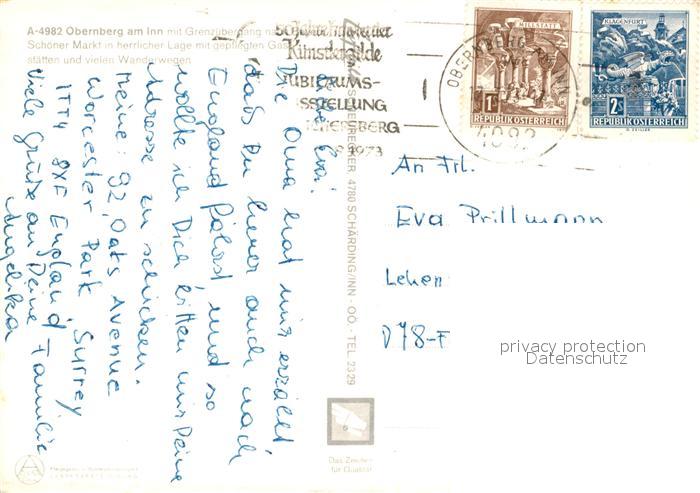 A-4982 Obernberg am Inn mit Grenzübergang
Schöner Markt in herrlicher Lage mit gepflegten
stätten und vielen Wanderwegen
50 Jahre Innviertler
Künstlergilde
JUBILÄUMS-
AUSSTELLUNG
OBERNBERG
1973
OBERNBERG AM INN
4982
MILLSTATT
1S
REPUBLIK ÖSTERREICH
KLAGENFURT
2S
REPUBLIK ÖSTERREICH
G. ZEILER
Liebe Eva!
Die Oma hat mir erzählt
daß Du heuer auch nach
England fährst, und so
wollte ich Dich bitten mir Deine
Adresse zu schicken.
Meine: 92, Oats Avenue
Worcester Park, Surrey
ITT4 8XF England
Viele Grüße an Deine Familie
Angelika
4780 SCHÄRDING/INN - OÖ. - TEL. 2329
An Frl.
Eva Prillmann
Lehen
D78-F
privacy protection
Datenschutz
Das Zeichen
für Qualität